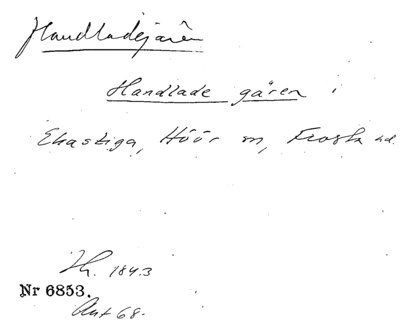 Handladejären
Handlade gären i
Ekastiga, Höör sn, Frosta hd.
Jh. 1843
Nr 6853.
Ant 68.